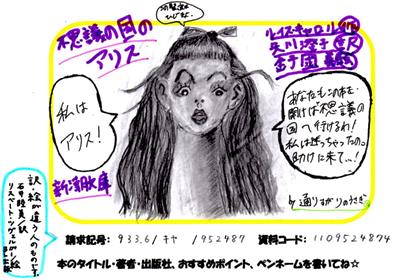 不思議の国の
アリス
ルイス・キャロル 作
矢川澄子 訳
金子國義 絵
私は
アリス!
あなたもこの本を
開けば不思議の
国へ行けるわ!
私は迷っちゃったの。
助けに来て…!
by 通りすがりのうさぎ
新潮文庫
訳・絵が違う人のものです。
石井睦美/訳
リスベート・ツヴェルガー/絵
請求記号: 933.6/キヤ /952487 資料コード: 1109524874
本のタイトル・著者・出版社、おすすめポイント、ペンネームを書いてね☆